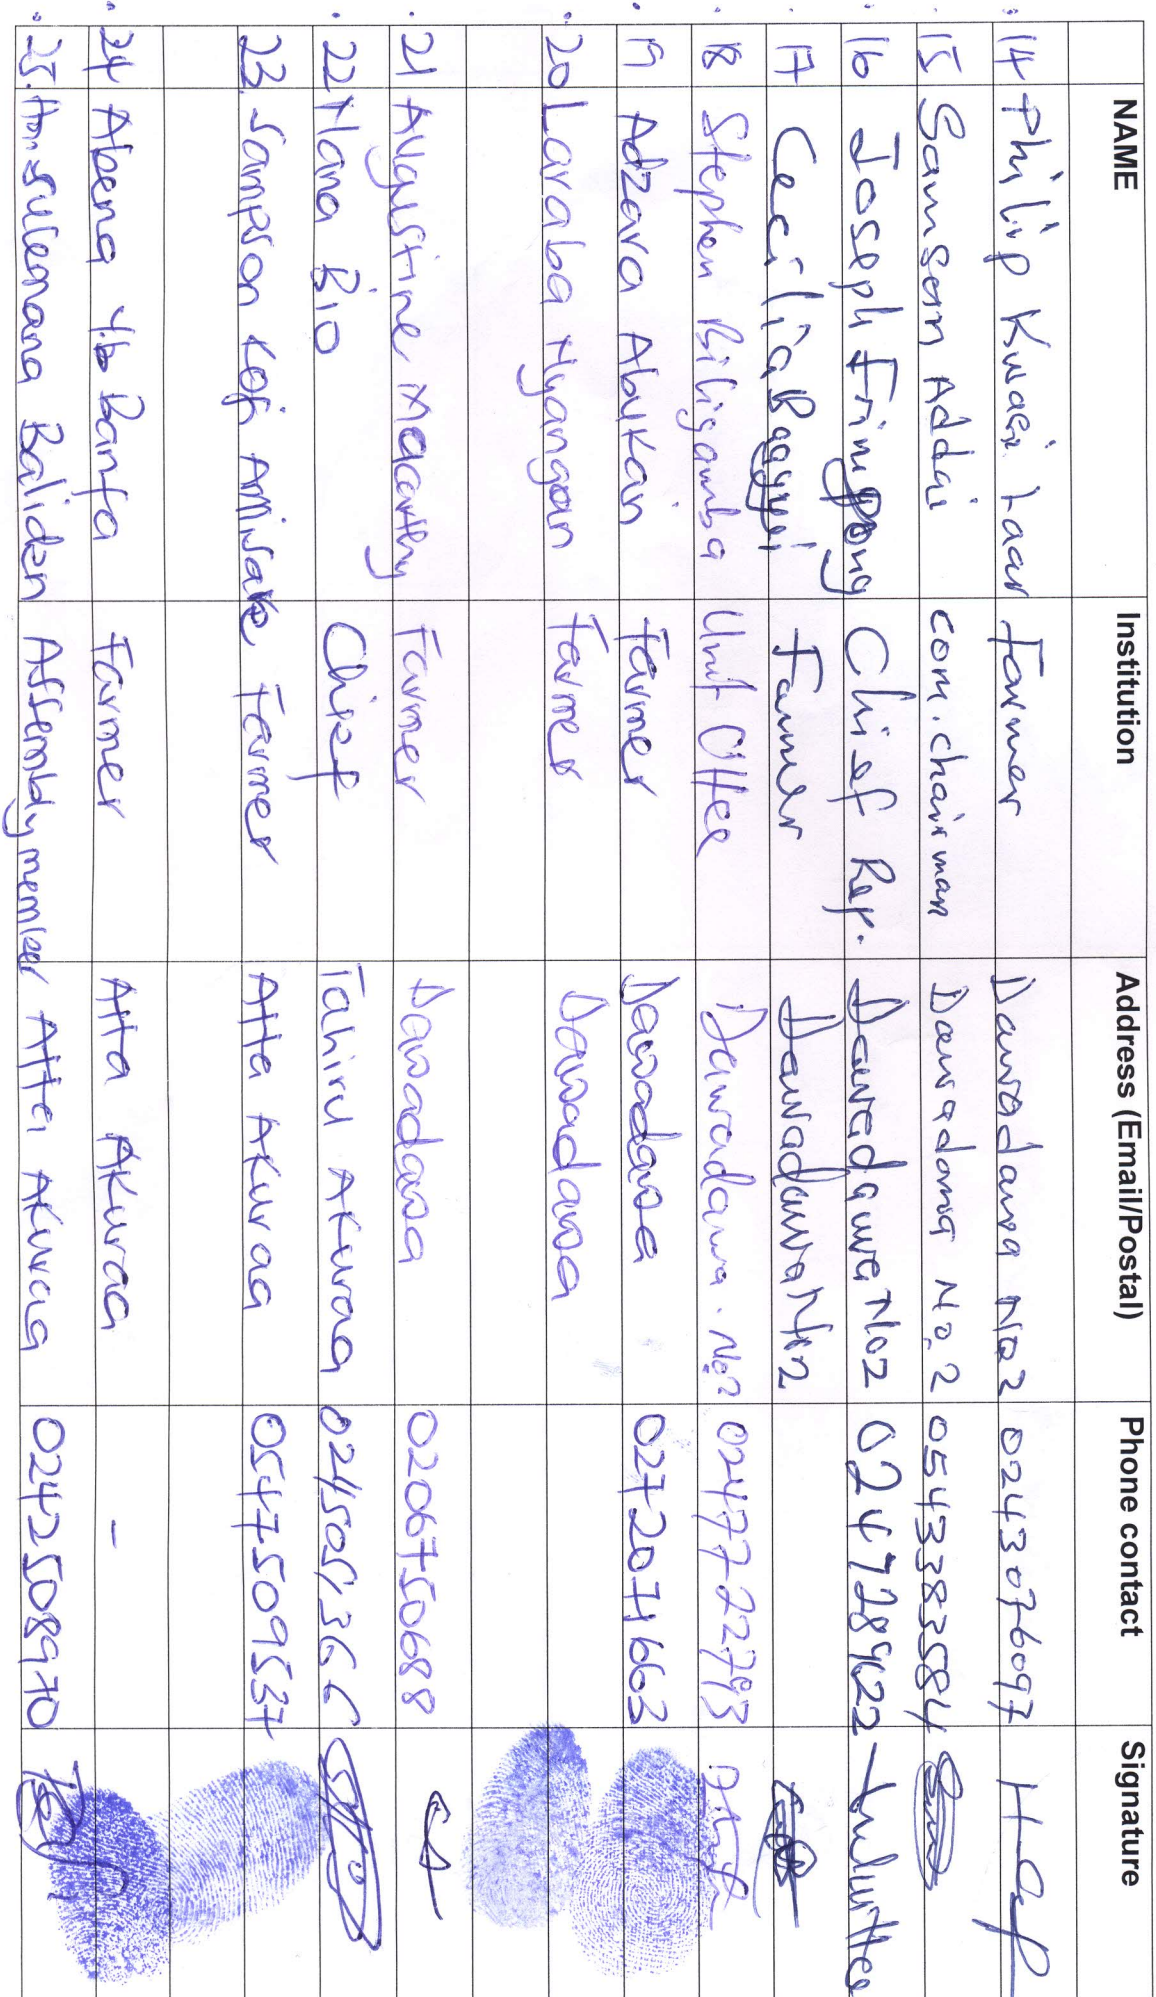 NAME Institution Address (Email/Postal) Phone contact Signature
14 Philip Kwasi Laar Farmer Dawadawa No2 0243076097
15 Samson Addai com. chairman Dawadawa No. 2 0543383584
16 Joseph Frimpong Chief Rep. Dawadawa No2 0247289622
17 Cecilia Farmer Dawadawa No2
18 Stephen Biligamba Unit Dawadawa. No2 0247722793
19 Adzara Abukari Farmer Dawadawa
20 Laraba Nyangan Farmer Dawadawa
21 Augustine Macarthy Farmer Dawadawa 0206750688
22 Nana Bio Chief Tahiru AKuraa
23. Sampson Kofi Farmer Atta AKuraa 0547509537
24 Abena Banfa Farmer Atta AKuraa -
25. Hon. Sulemana Assembly member Atta AKuraa 0242508970